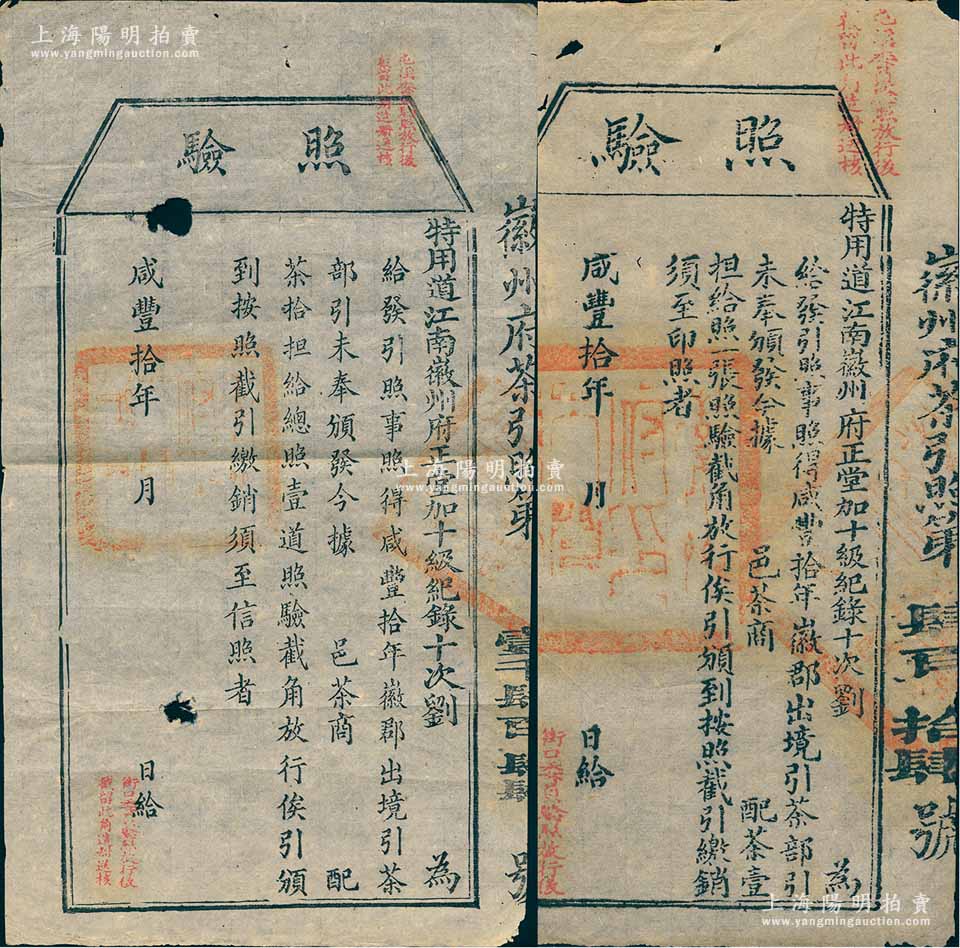 上海陽明拍賣
www.yangmingauction.com
照驗
特用道江南徽州府正堂加十級紀錄十次劉 為
給發引照事照得咸豐拾年徽郡出境引茶
部引未奉頒發今據 邑茶商 配
茶拾担給總照壹道照驗截角放行俟引頒
到按照截引繳銷須至信照者
咸豐拾年 月 日給
徽州府茶引照第壹千肆百肆 號
照驗
特用道江南徽州府正堂加十級紀錄十次劉 為
給發引照事照得咸豐拾年徽郡出境引茶部引
未奉頒發今據 邑茶商 配茶壹
担給照一張照驗截角放行俟引頒到按照截引繳銷
須至印照者
咸豐拾年 月 日給
徽州府茶引照第肆百拾肆號
上海陽明拍賣
www.yangmingauction.com
上海陽明拍賣
www.yangmingauction.com